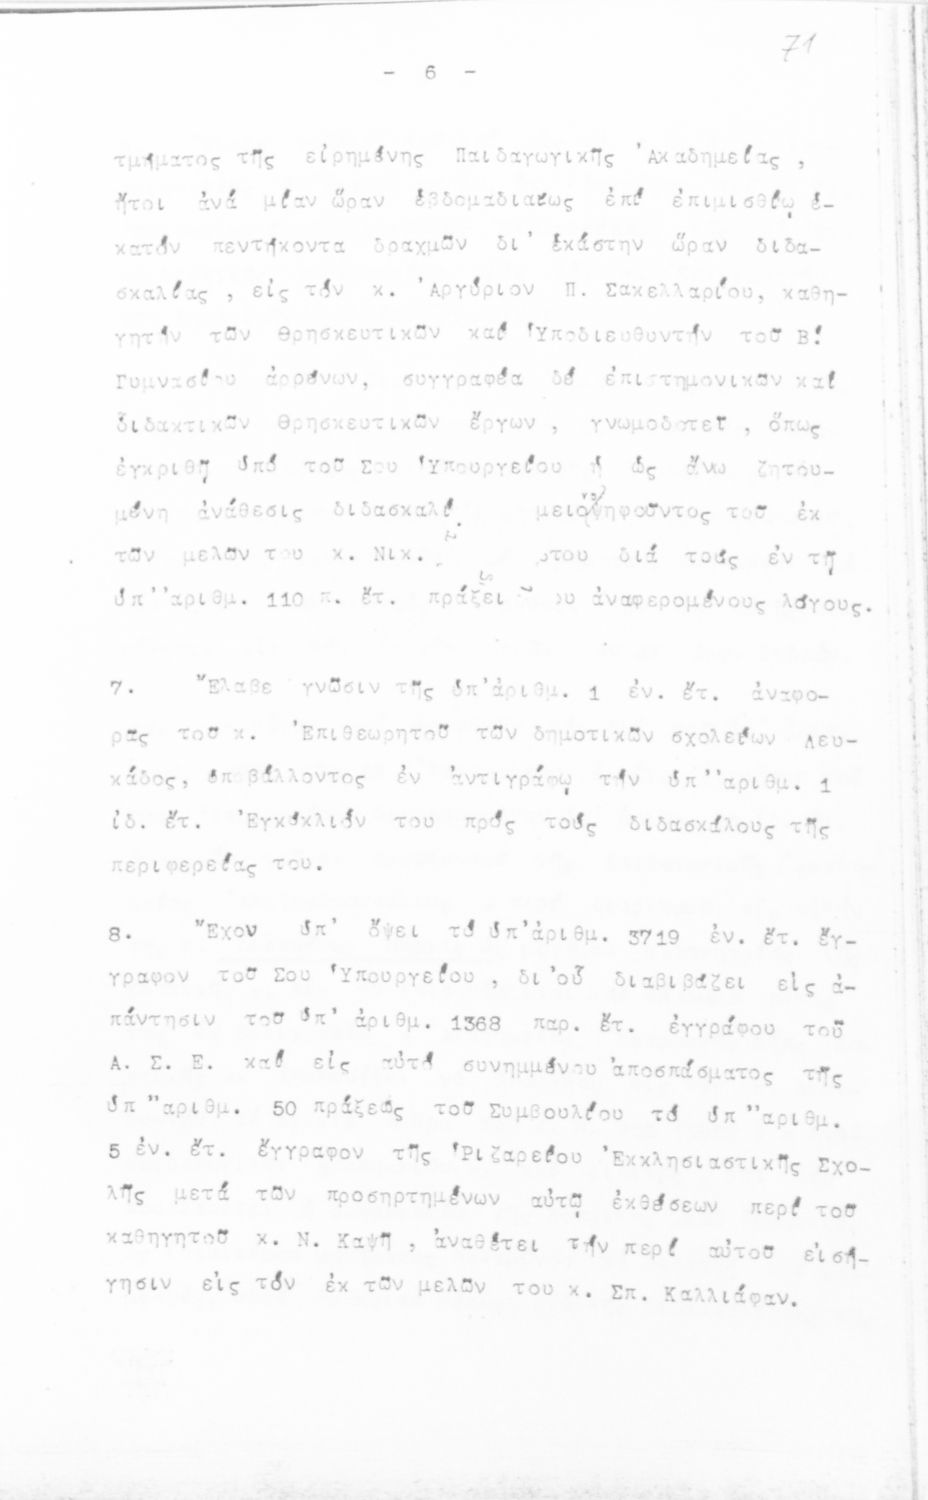 71
- 6 -
τμήματος τῆς εἰρημένης Παιδαγωγικῆς Ἀκαδημείας,
ἤτοι ἀνά μίαν ὥραν ἑβδομαδιαίως ἐπί ἐπιμισθίῳ ἑ-
κατόν πεντήκοντα δραχμῶν δι' ἑκάστην ὥραν διδα-
σκαλίας, εἰς τόν κ. Ἀργύριον Π. Σακελλαρίου, καθη-
γητήν τῶν θρησκευτικῶν καί Ὑποδιευθυντήν τοῦ Β!
Γυμνασίου ἀρρένων, συγγραφέα δέ ἐπιστημονικῶν καί
διδακτικῶν θρησκευτικῶν ἔργων, γνωμοδοτεῖ, ὅπως
ἐγκριθῇ ὑπό τοῦ Σου Ὑπουργείου ἡ ὡς ἄνω ζητου-
μένη ἀνάθεσις διδασκαλί μειοψηφοῦντος τοῦ ἐκ
τῶν μελῶν του κ. Νικ. διά τούς ἐν τῇ
ὑπ' ἀριθμ. 110 π. ἔτ. πράξει ἀναφερομένους λόγους.
7. Ἔλαβε γνῶσιν τῆς ὑπ' ἀριθμ. 1 ἐν. ἔτ. ἀναφο-
ρᾶς τοῦ κ. Ἐπιθεωρητοῦ τῶν δημοτικῶν σχολείων Λευ-
κάδος, ὑποβάλλοντος ἐν ἀντιγράφῳ τήν ὑπ' ἀριθμ. 1
ἰδ. ἔτ. Ἐγκύκλιόν του πρός τούς διδασκάλους τῆς
περιφερείας του.
8. Ἔχον ὑπ' ὄψει τό ὑπ' ἀριθμ. 3719 ἐν. ἔτ. ἔγ-
γραφον τοῦ Σου Ὑπουργείου, δι' οὗ διαβιβάζει εἰς ἀ-
πάντησιν τοῦ ὑπ' ἀριθμ. 1368 παρ. ἔτ. ἐγγράφου τοῦ
Α. Σ. Ε. καί εἰς αὐτό συνημμένου ἀποσπάσματος τῆς
ὑπ' ἀριθμ. 50 πράξεως τοῦ Συμβουλίου τό ὑπ' ἀριθμ.
5 ἐν. ἔτ. ἔγγραφον τῆς Ῥιζαρείου Ἐκκλησιαστικῆς Σχο-
λῆς μετά τῶν προσηρτημένων αὐτῷ ἐκθέσεων περί τοῦ
καθηγητοῦ κ. Ν. Καψῆ, ἀναθέτει τήν περί αὐτοῦ εἰσή-
γησιν εἰς τόν ἐκ τῶν μελῶν του κ. Σπ. Καλλιάφαν.